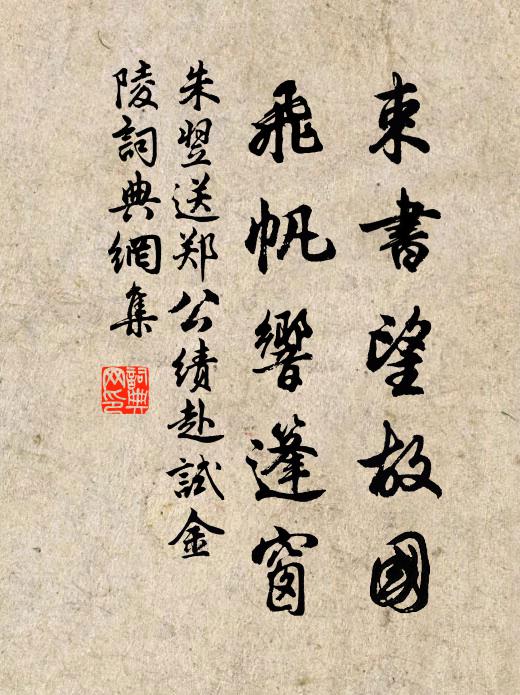 束書望故國
飛帆響篷窗
朱翌送郑公绩赴試金
陵詞典網集
詞典
网印